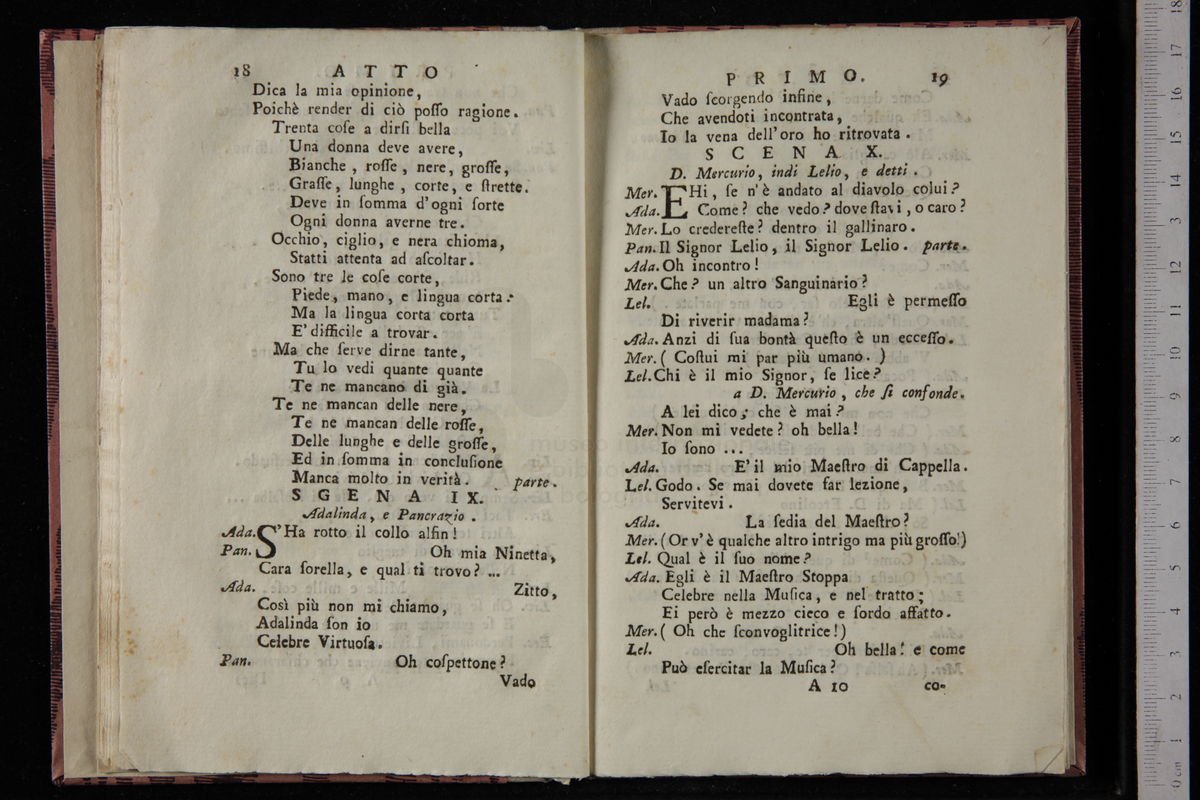 18 ATTO
Dica la mia opinione,
Poichè render di ciò poſſo ragione.
Trenta coſe a dirſi bella
Una donna deve avere,
Bianche, roſſe, nere, groſſe,
Graſſe, lunghe, corte, e ſtrette.
Deve in ſomma d'ogni ſorte
Ogni donna averne tre.
Occhio, ciglio, e nera chioma,
Statti attenta ad aſcoltar.
Sono tre le coſe corte,
Piede, mano, e lingua corta:
Ma la lingua corta corta
E' difficile a trovar.
Ma che ſerve dirne tante,
Tu lo vedi quante quante
Te ne mancano di già.
Te ne mancan delle nere,
Te ne mancan delle roſſe,
Delle lunghe e delle groſſe,
Ed in ſomma in concluſione
Manca molto in verità. parte.
SGENA IX.
Adalinda, e Pancrazio.
Ada. S'Ha rotto il collo alfin!
Pan. Oh mia Ninetta,
Cara ſorella, e qual ti trovo? ...
Ada. Zitto,
Così più non mi chiamo,
Adalinda ſon io
Celebre Virtuoſa.
Pan. Oh coſpettone?
Vado
PRIMO. 19
Vado ſcorgendo infine,
Che avendoti incontrata,
Io la vena dell'oro ho ritrovata.
SCENA X.
D. Mercurio, indi Lelio, e detti.
Mer. EHi, ſe n'è andato al diavolo colui?
Ada. Come? che vedo? dove ſtavi, o caro?
Mer. Lo credereſte? dentro il gallinaro.
Pan. Il Signor Lelio, il Signor Lelio. parte.
Ada. Oh incontro!
Mer. Che? un altro Sanguinario?
Lel. Egli è permeſſo
Di riverir madama?
Ada. Anzi di ſua bontà queſto è un ecceſſo.
Mer. (Coſtui mi par più umano.)
Lel. Chi è il mio Signor, ſe lice?
a D. Mercurio, che ſi confonde.
A lei dico; che è mai?
Mer. Non mi vedete? oh bella!
Io ſono ...
Ada. E' il mio Maeſtro di Cappella.
Lel. Godo. Se mai dovete far lezione,
Servitevi.
Ada. La ſedia del Maeſtro?
Mer. (Or v'è qualche altro intrigo ma più groſſo!)
Lel. Qual è il ſuo nome?
Ada. Egli è il Maeſtro Stoppa
Celebre nella Muſica, e nel tratto;
Ei però è mezzo cieco e ſordo affatto.
Mer. (Oh che ſconvoglitrice!)
Lel. Oh bella! e come
Può eſercitar la Muſica?
A 10 co-